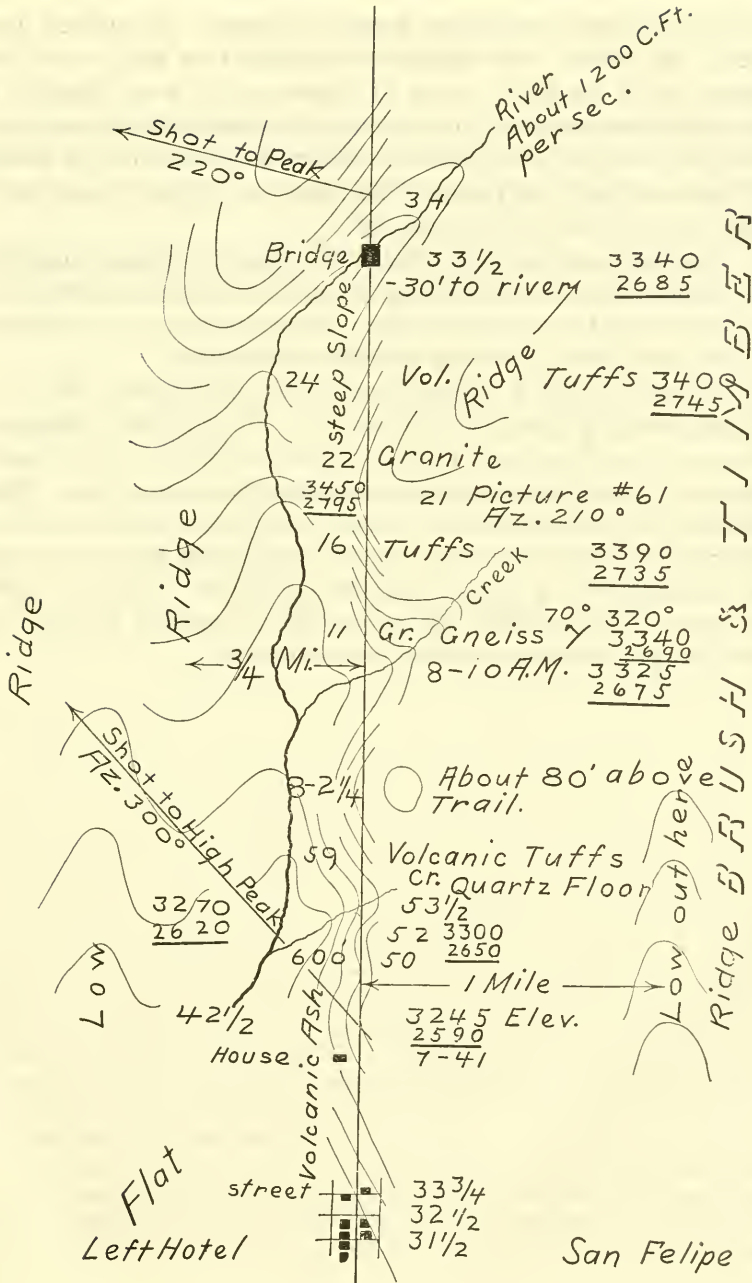 River
About 1200 C.Ft.
per sec.
Shot to Peak
220°
34
Bridge
33 1/2
-30' to river
3340
2685
steep Slope
24
Vol.
Ridge
Tuffs
3400
2745
22
Granite
3450
2795
21 Picture #61
Az. 210°
16
Tuffs
3390
2735
Creek
Ridge
Ridge
11
Gr. Gneiss
70° 320°
3340
2690
3/4 Mi.
8-10 A.M.
3325
2675
Shot to High Peak
Az. 300°
8-2 1/4
About 80' above
Trail.
59
Volcanic Tuffs
Cr. Quartz Floor
53 1/2
52
3300
2650
50
3270
2620
600'
Low
1 Mile
Low out here
Ridge BRUSH & TIMBER
42 1/2
3245 Elev.
2590
7-41
House
Volcanic Ash
Flat
street
33 3/4
32 1/2
31 1/2
Left Hotel
San Felipe